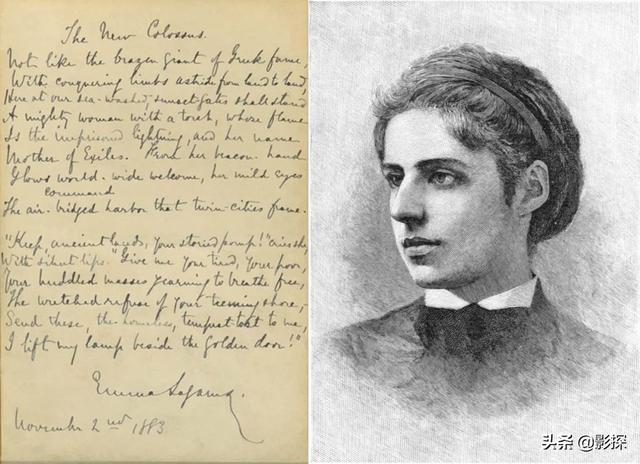 The New Colossus.
Not like the brazen giant of Greek fame,
With conquering limbs astride from land to land;
Here at our sea-washed, sunset gates shall stand
A mighty woman with a torch, whose flame
Is the imprisoned lightning, and her name
Mother of Exiles. From her beacon-hand
Glows world-wide welcome, her mild eyes
command
The air-bridged harbor that twin-cities frame.
"Keep, ancient lands, your storied pomp!" cries she,
With silent lips. "Give me your tired, your poor,
Your huddled masses yearning to breathe free,
The wretched refuse of your teeming shore,-
Send these, the homeless, tempest-tost to me,
I lift my lamp beside the golden door!"
Emma Lazarus.
November 2nd 1883
头条 @影探